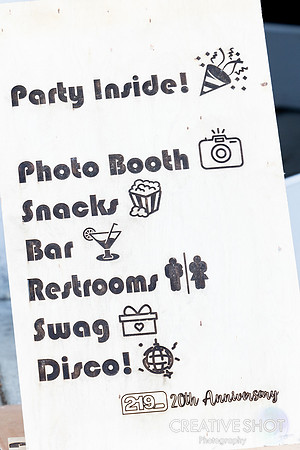 Party Inside!
Photo Booth
Snacks
Bar
Restrooms
Swag
Disco!
219 20th Anniversary
CREATIVE SHOT
Photography